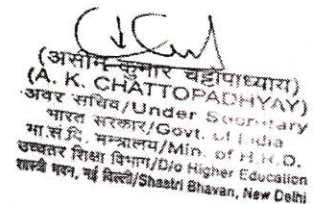 (असीम कुमार चट्टोपाध्याय)
(A. K. CHATTOPADHYAY)
अवर सचिव/Under Secretary
भारत सरकार/Govt. of India
मा.सं.वि. मन्त्रालय/Min. of H.R.D.
उच्चतर शिक्षा विभाग/D/o Higher Education
शास्त्री भवन, नई दिल्ली/Shastri Bhavan, New Delhi